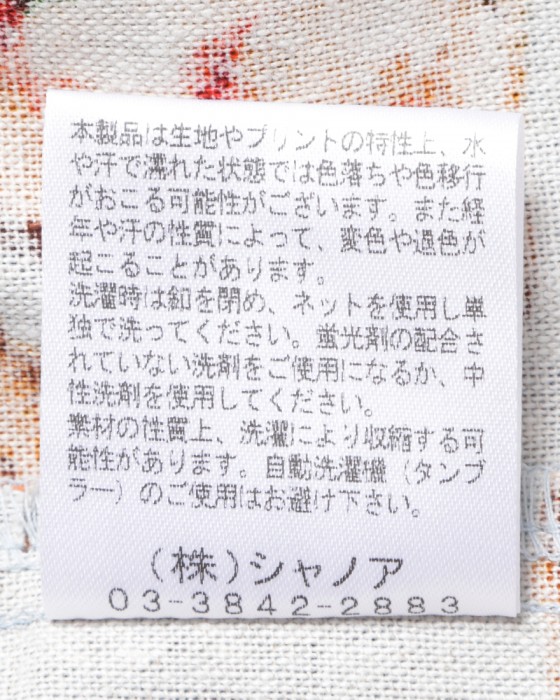 本製品は生地やプリントの特性上、水
や汗で濡れた状態では色落ちや色移行
がおこる可能性がございます。また経
年や汗の性質によって、変色や退色が
起こることがあります。
洗濯時は釦を閉め、ネットを使用し単
独で洗ってください。蛍光剤の配合さ
れていない洗剤をご使用になるか、中
性洗剤を使用してください。
素材の性質上、洗濯により収縮する可
能性があります。自動洗濯機（タンブ
ラー）のご使用はお避け下さい。
（株）シャノア
03-3842-2883